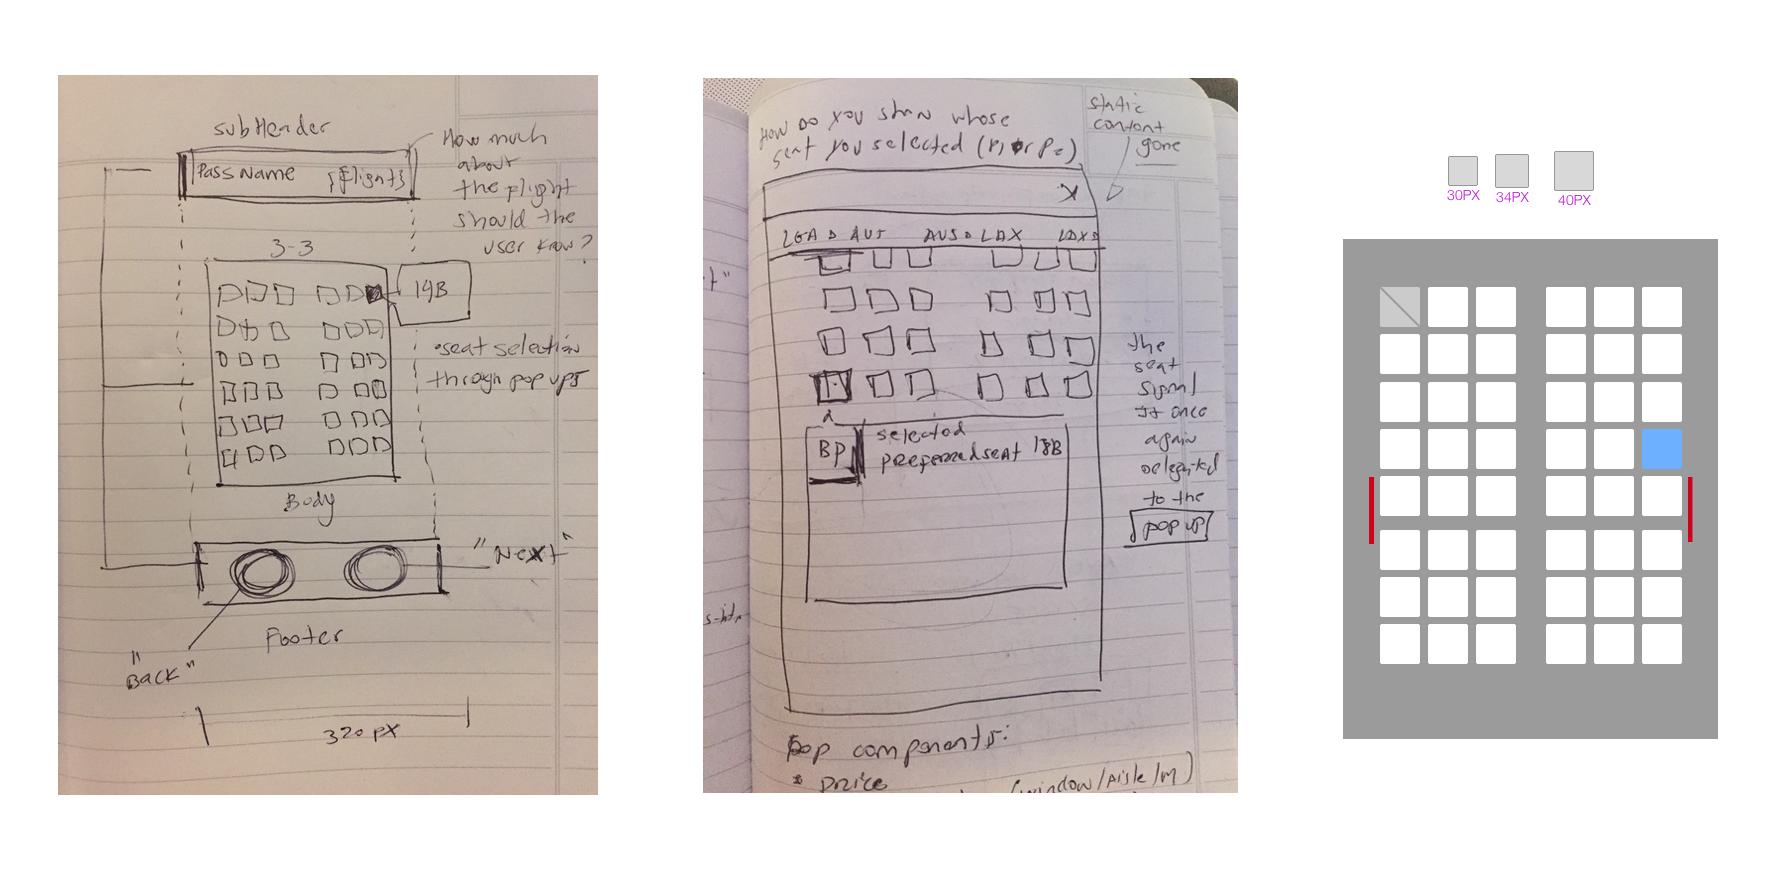 subHeader
Pass Name {flight}
How much
about
the flight
should the
user know?
3-3
19B
seat selection
through pop ups
Body
"Next"
Footer
"Back"
320 px
How Do you show whose
seat you selected (P1 or P2)
static
content
gone
X
LGA AUS AUS LAX LAX
the
seat
signal
it once
again
delegated
to the
pop up
BP
selected
preferred seat 18B
pop components:
price
(window/Aisle/m)
30PX
34PX
40PX